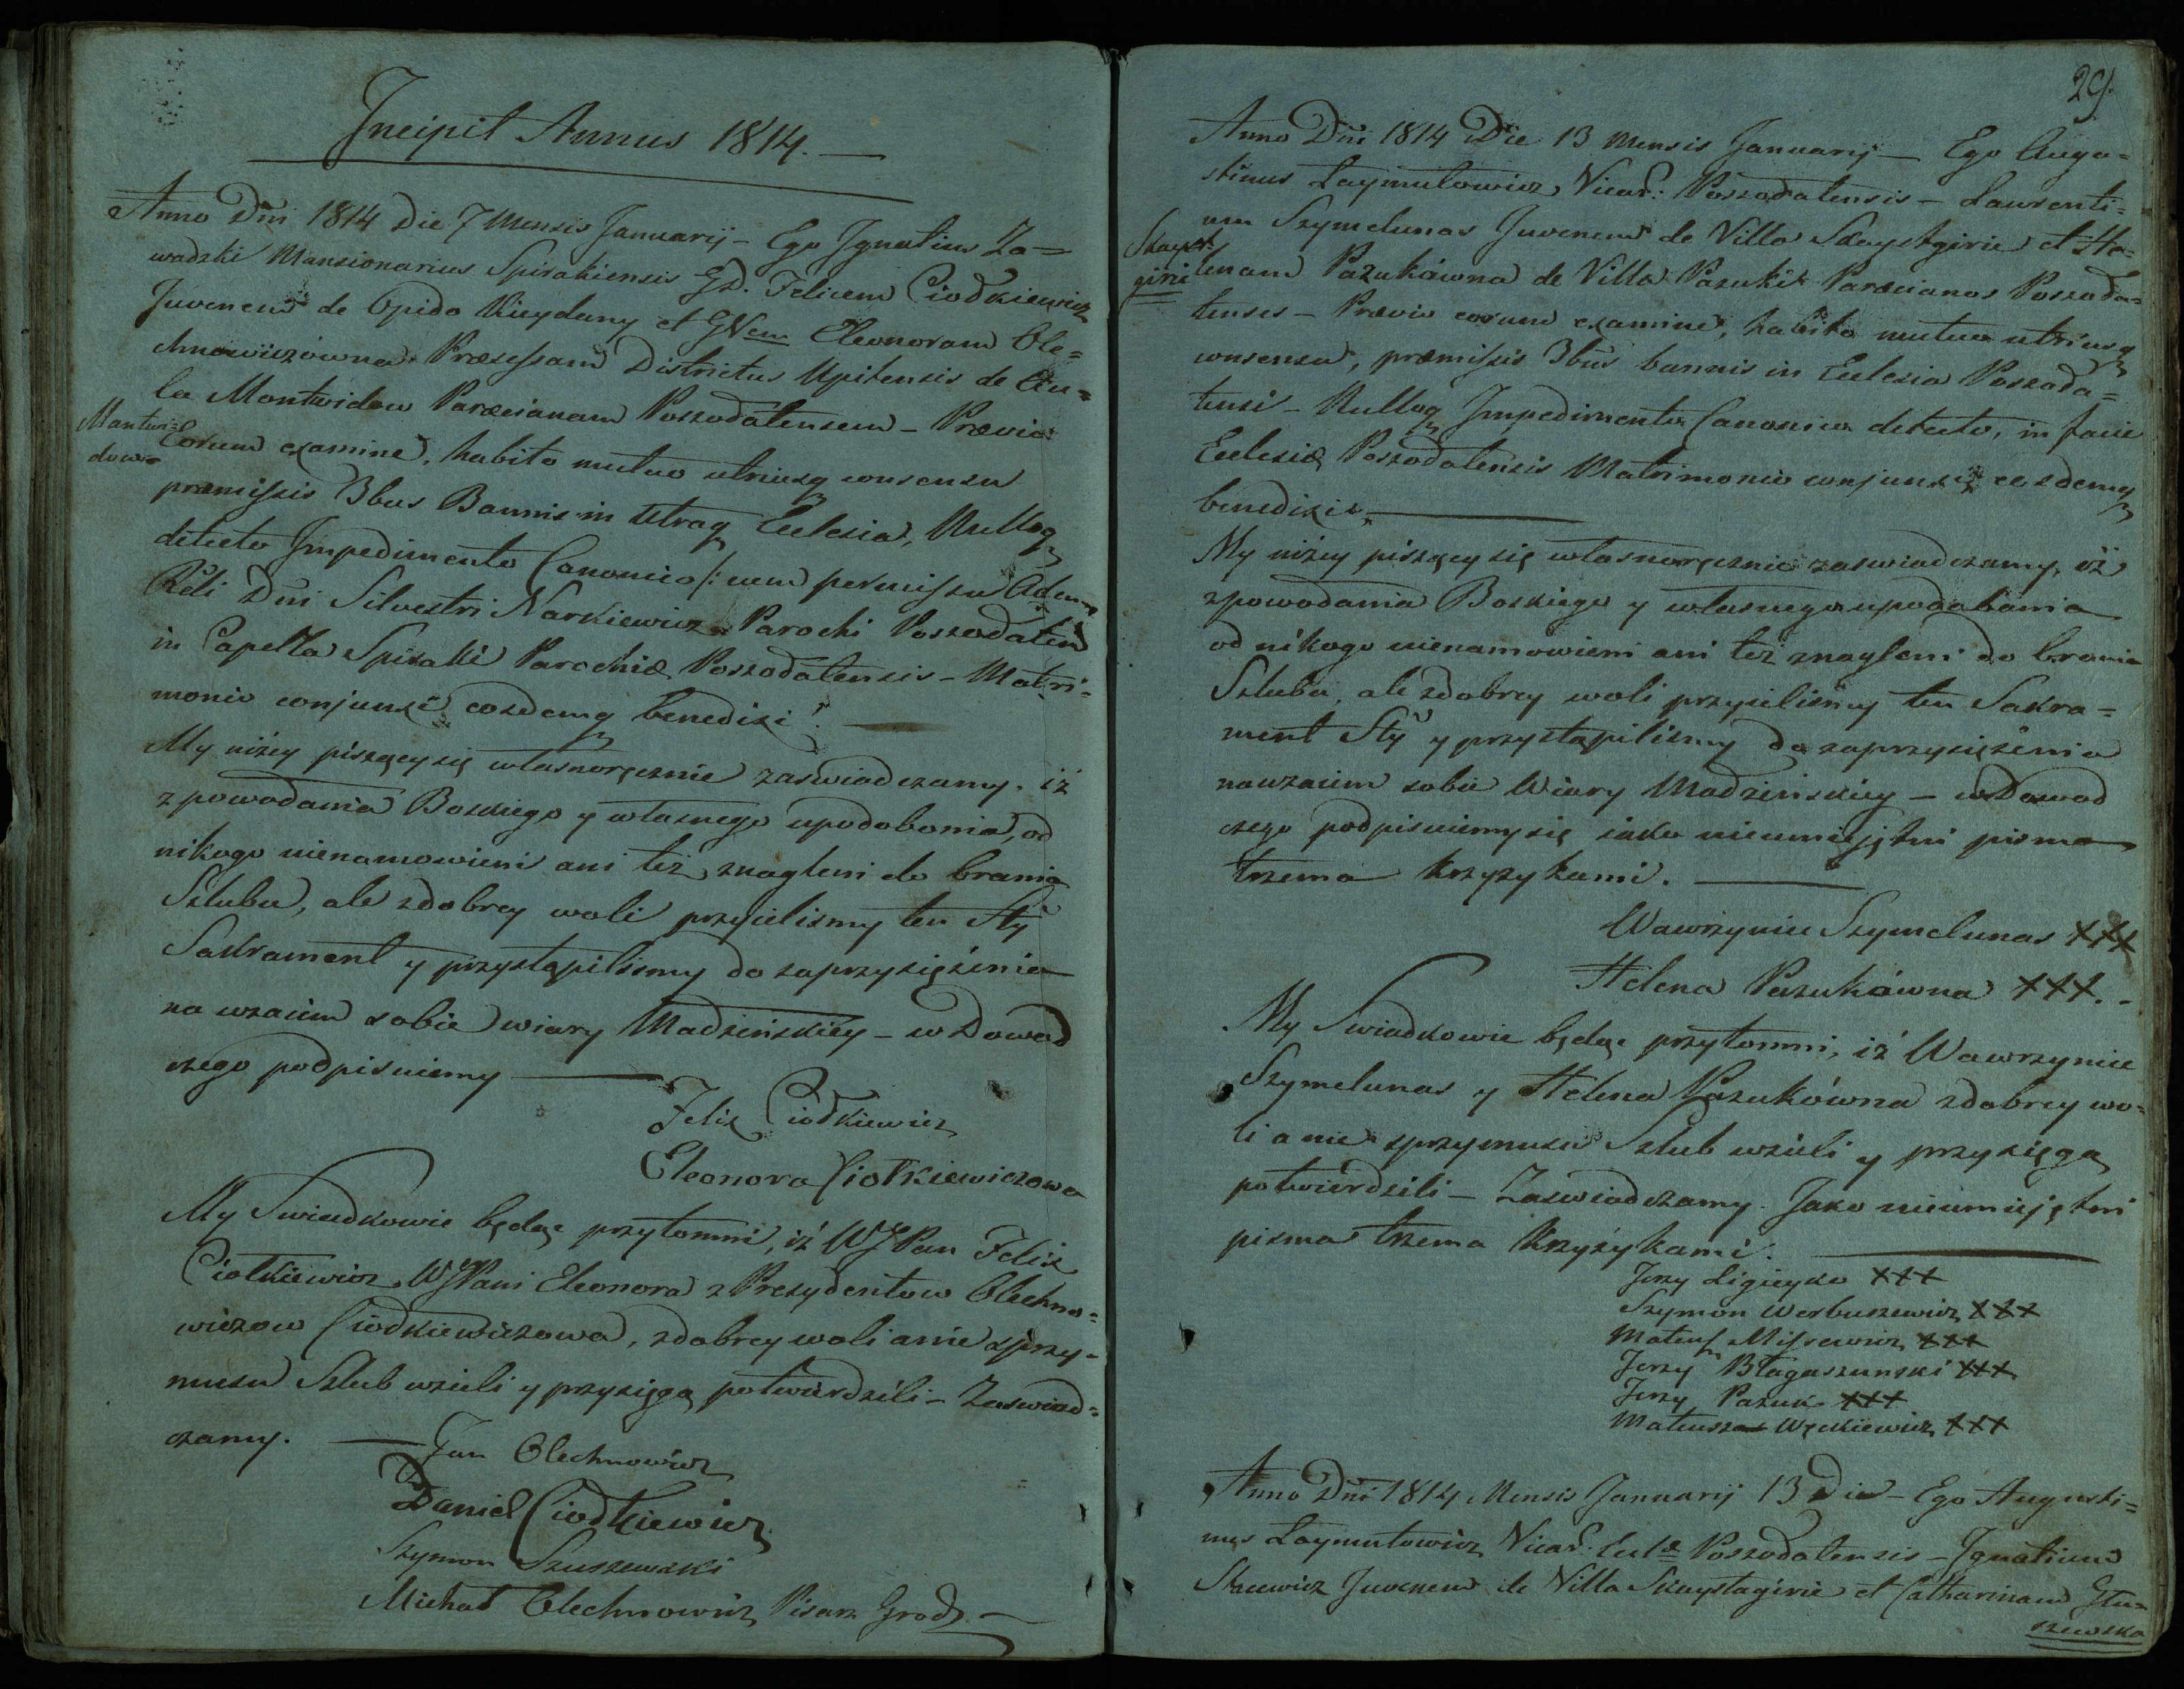 Incipit Annus 1814. —
Anno Dñi 1814 Die 7 Mensis Januarij – Ego Ignatius Za=
wadzki Mansionarius Spirakiensis GD. Felicem Ciodkiewicz
Juvenem de Opido Kieydany et GVem Eleonoram Ole=
chnowiczówna Præsessam Districtus Upitensis de Au=
la Montwidow Paræcianam Poszodatensem – Prævio
Mantwi=
dow=
Eorum examine, habito mutuo utriusq consensu
præmissis 3bus Bannis in utraq Eclesia, Nulloq
detecto Impedimento Canonico /: cum permissu Adm
Rdi Dñi Silvestri Narkiewicz Parochi Poszodaten
in Capella Spiraki Parochiæ Poszodatensis – Matri=
monio conjunxi eosdemq benedixi. —
My niżey piszący się własnoręcznie zaswiadczamy. iż
z powodania Boskiego y własnego upodobania, od
nikogo nienamowieni ani też znagleni do brania
Szlubu, ale zdobrey woli przyielismy ten Sty
Sakrament y przystąpilismy do zaprzysiężenia
na wzaiem sobie wiary Madżeńskiey – w Dowod
czego podpisuiemy —
Felix Ciodkiewicz
Eleonora Ciotkiewiczowa
My Swiadkowie będąc przytomni, iż WJPan Felix
Ciotkiewicz, WJPani Eleonora z Prezydentow Olechno=
wiczow Ciodkiewiczowa, zdobrey woli a nie zprzy=
musu Szlub wzieli y przysięgą potwierdzili – Zaswiad=
czamy. — Jan Olechnowicz
Daniel Ciodkiewicz
Szymon Szuszewski
Michał Olechnowicz Pisarz Grodz —
29.
Anno Dñi 1814 Die 13 Mensis Januarij — Ego Augu=
stinus Laymutowicz, Vicar: Poszodatensis – Laurenti=
um Szymelunas Juvenem de Villa Skaystgirie et He=
Skayst
girie
lenam Pazukówna de Villa Pazuki Paræcianos Poszoda=
tenses – Prævio eorum examine, habito mutuo utriusq
consensu, præmissis 3bus bannis in Eclesia Poszoda=
tensi – Nulloq Impedimento Canonico detecto, in facie
Eclesiæ Poszodatensis Matrimonio conjunxi eosdemq
benedixi. —
My niżey piszący się własnoręcznie zaswiadczamy, iż
zpowodania Boskiego y własnego upodabania
od nikogo nienamowieni ani też znagleni do brania
Szlubu, ale zdobrey woli przyielismy ten Sakra=
ment Sty y przystąpilismy do zaprzysiężenia
nawzaiem sobie Wiary Madżeńskiey – w Dowod
czego podpisuiemy się iako nieumiejętni pisma
trzema krzyżykami. —
Wawrzyniec Szymelunas XXX
Helena Pazukówna XXX. -
My Swiadkowie będąc przytomni, iż Wawrzyniec
Szymelunas y Helena Pazukówna zdobrey wo=
li a nie zprzymusu Szlub wzieli y przysięgą
potwierdzili – Zaswiadczamy. Jako nieumiejętni
pisma trzema krzyżykami. —
Jerzy Ligieyko XXX
Szymon Werbuszewicz XXX
Mateusz Missewicz XXX
Jerzy Błagaszunski XXX
Jerzy Pazuk XXX
Mateusz Węckiewicz XXX
Anno Dñi 1814 Mensis Januarij 13 Die – Ego Augusti=
nus Laymutowicz Vicar. Eclæ Poszodatensis – Ignatium
Juvenem de Villa Skaystagirie et Catharinam Glu=
szewska